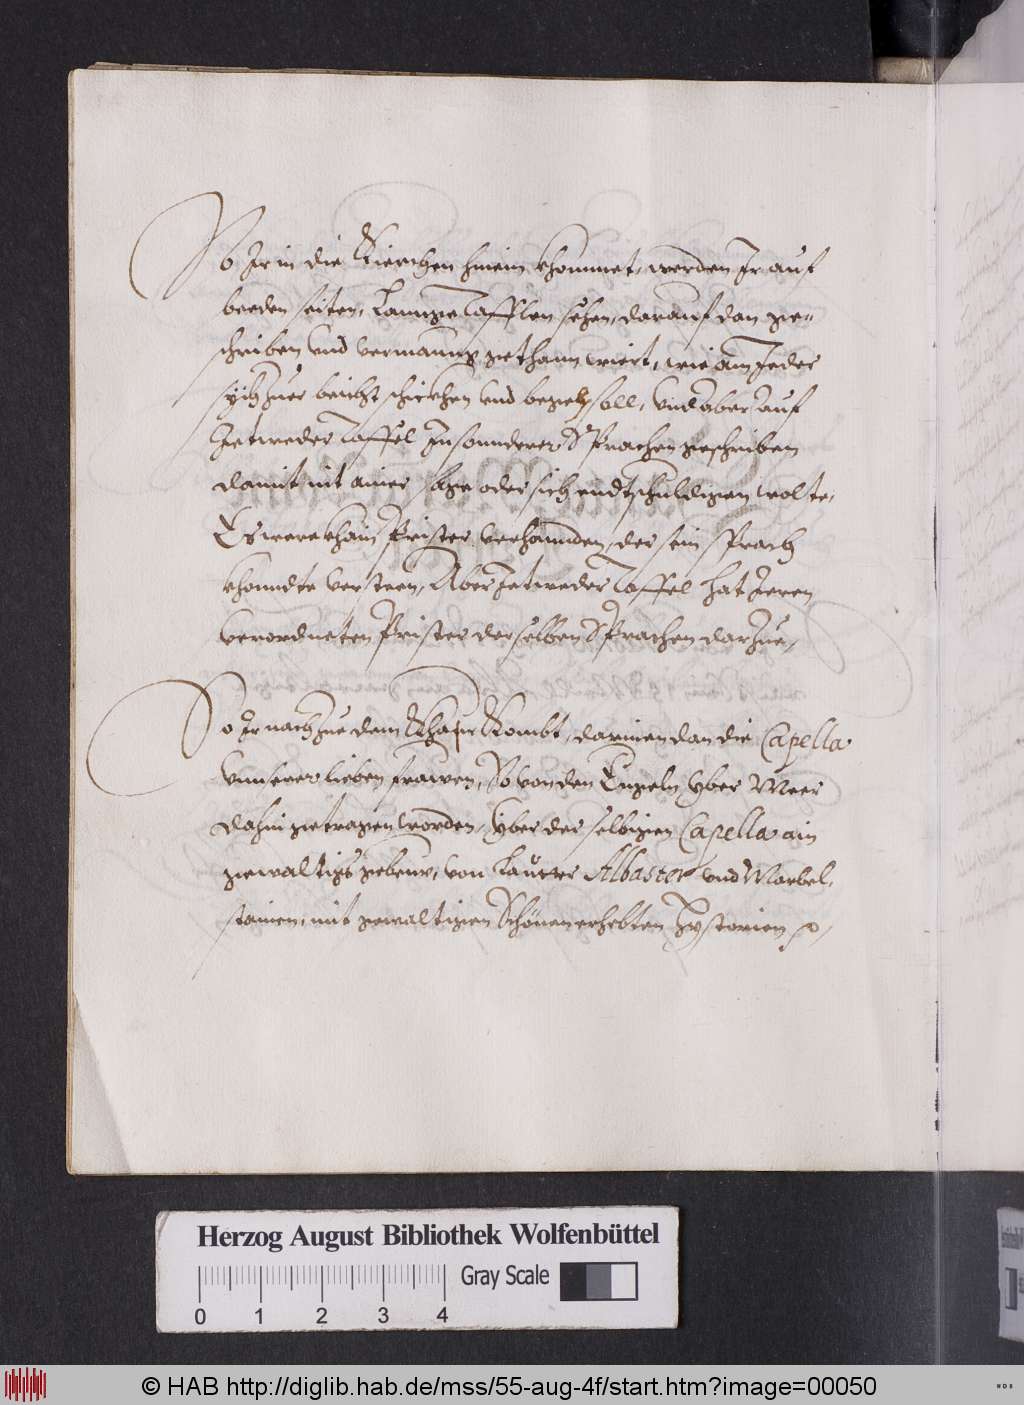 So Ir in die Kierchen hinein khommet, werden Ir auf
beeden seiten, Lannge Tafflen sehen, darauf dan ge-
schriben und vermanung gethann wiert, wie ain Jeder
sich zuer beicht schickhen und soll, und aber auf
Jetweder Taffel In sonnderer Sprachen geschriben
damit nit ainer sage oder sich endtschuldigen wolte,
Es were khain Prister verhannden, der sein Sprach
khonndte versteen, Aber Jetweder Taffel hat Jeren
verordneten Prister derselben Sprachen darzue,
So Ir nach zue dem Khor Kombt, darinen dan die Capella
unnserer lieben frawen, So von den Engeln yber Meer
dahin getragen worden, yber der selbigen Capella ain
gewaltigs gebeuw, von Lautter Albaster und Marbel,
stainen, mit gewaltigen Schönen erhebten Hystorien
Herzog August Bibliothek Wolfenbüttel
Gray Scale
0 1 2 3 4
© HAB http://diglib.hab.de/mss/55-aug-4f/start.htm?image=00050